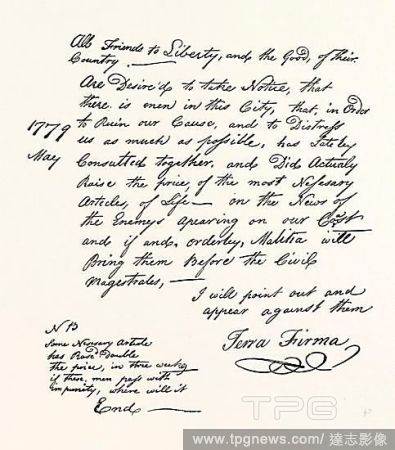 All Friends to Liberty, and the Good, of their
Country. —
Are Desire'd to take Notice, that
there is men in this City, that, in Order
to Ruin our Cause, and to Distress
us as much as possible, has Lateley
Consulted together, and Did Actualy
Raise the price, of the most Nessesary
Articles, of Life — on the News of
the Enemeys apearing on our Coast
and if and, orderley, Malitia will
Bring them Before the Civil
Magestrales, —
I will point out and
appear against them
Terra Firma
1779
May
N B
Some Nessary Article
has Rais'd Double
the price, in three weeks
if these, men pass with
impunity, where will it
End —
TPG
www.tpgnews.com/達志影像